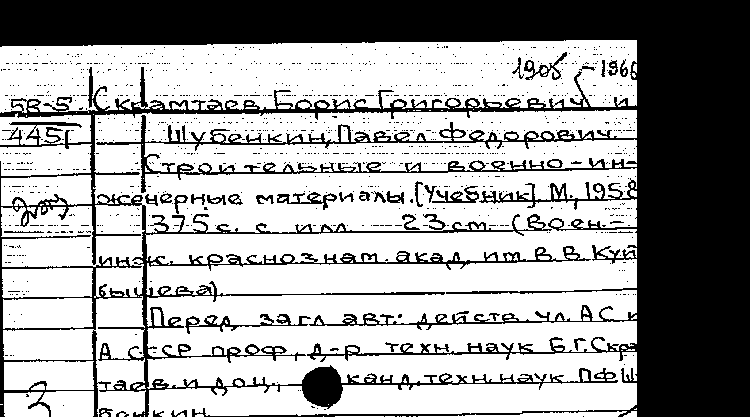 1905 - 1966
58-5 Скрамтаев, Борис Григорьевич и
4451 Шубенкин, Павел Федорович.
Строительные и военно-ин-
женерные материалы. [Учебник]. М., 1958
375 с. с илл. 23 см. (Воен.-
инж. краснознам. акад. им. В. В. Куй
бышева).
Перед загл. авт.: действ. чл. АС и
А СССР проф., д-р техн. наук Б.Г. Скра
таев. и доц., канд. техн. наук П.Ф. Ш
бенкин.
3